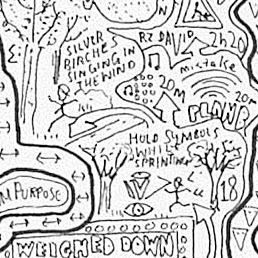 SILVER
BIRCHES
SINGING IN
THE WIND
RZ DAVID
2h20
mistake
20m
20m
PLAN B
HOLD SYMBOLS
WHILE
SPRINTING
18
PURPOSE
WEIGHED DOWN